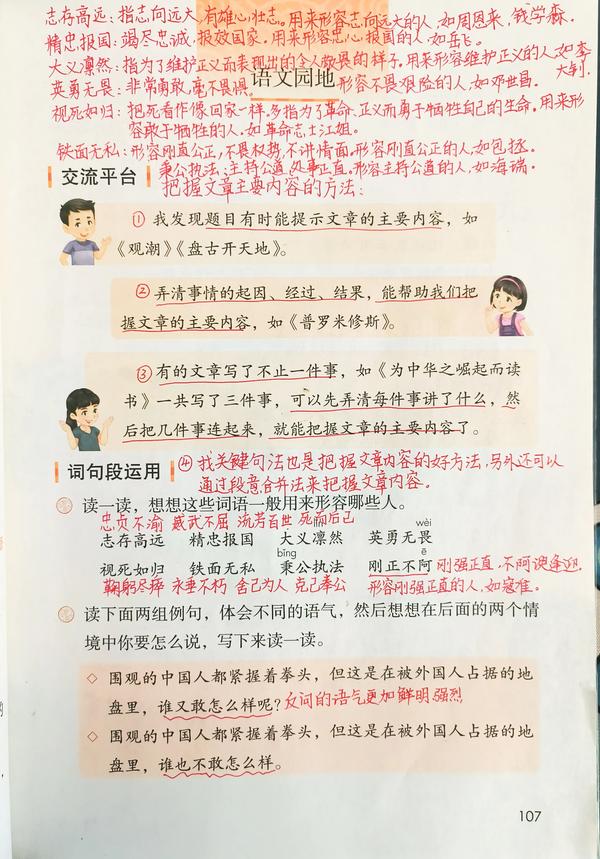 志存高远：指志向远大，有雄心壮志。用来形容志向远大的人，如周恩来、钱学森。
精忠报国：竭尽忠诚，报效国家。用来形容忠心报国的人，如岳飞。
大义凛然：指为了维护正义而表现出的令人敬畏的样子。用来形容维护正义的人，如李大钊。
英勇无畏：非常勇敢，毫不畏惧。形容不畏艰险的人，如邓世昌。
语文园地
视死如归：把死看作像回家一样。多指为了革命、正义而勇于牺牲自己的生命。用来形
容敢于牺牲的人，如革命志士江姐。
铁面无私：形容刚直公正，不畏权势，不讲情面。形容刚直公正的人，如包拯。
秉公执法：主持公道，处事正直。形容主持公道的人，如海瑞。
交流平台
把握文章主要内容的方法：
① 我发现题目有时能提示文章的主要内容，如
《观潮》《盘古开天地》。
② 弄清事情的起因、经过、结果，能帮助我们把
握文章的主要内容，如《普罗米修斯》。
③ 有的文章写了不止一件事，如《为中华之崛起而读
书》一共写了三件事，可以先弄清每件事讲了什么，然
后把几件事连起来，就能把握文章的主要内容了。
词句段运用
④ 找关键句法也是把握文章内容的好方法，另外还可以
通过段意合并法来把握文章内容。
读一读，想想这些词语一般用来形容哪些人。
忠贞不渝 威武不屈 流芳百世 死而后已
wèi
志存高远 精忠报国 大义凛然 英勇无畏
bǐng ē
视死如归 铁面无私 秉公执法 刚正不阿 刚强正直，不阿谀逢迎。
鞠躬尽瘁 永垂不朽 舍己为人 克己奉公 形容刚强正直的人，如寇准。
读下面两组例句，体会不同的语气，然后想想在后面的两个情
境中你要怎么说，写下来读一读。
◇ 围观的中国人都紧握着拳头，但这是在被外国人占据的地
盘里，谁又敢怎么样呢？反问的语气更加鲜明强烈
◇ 围观的中国人都紧握着拳头，但这是在被外国人占据的地
盘里，谁也不敢怎么样。
107